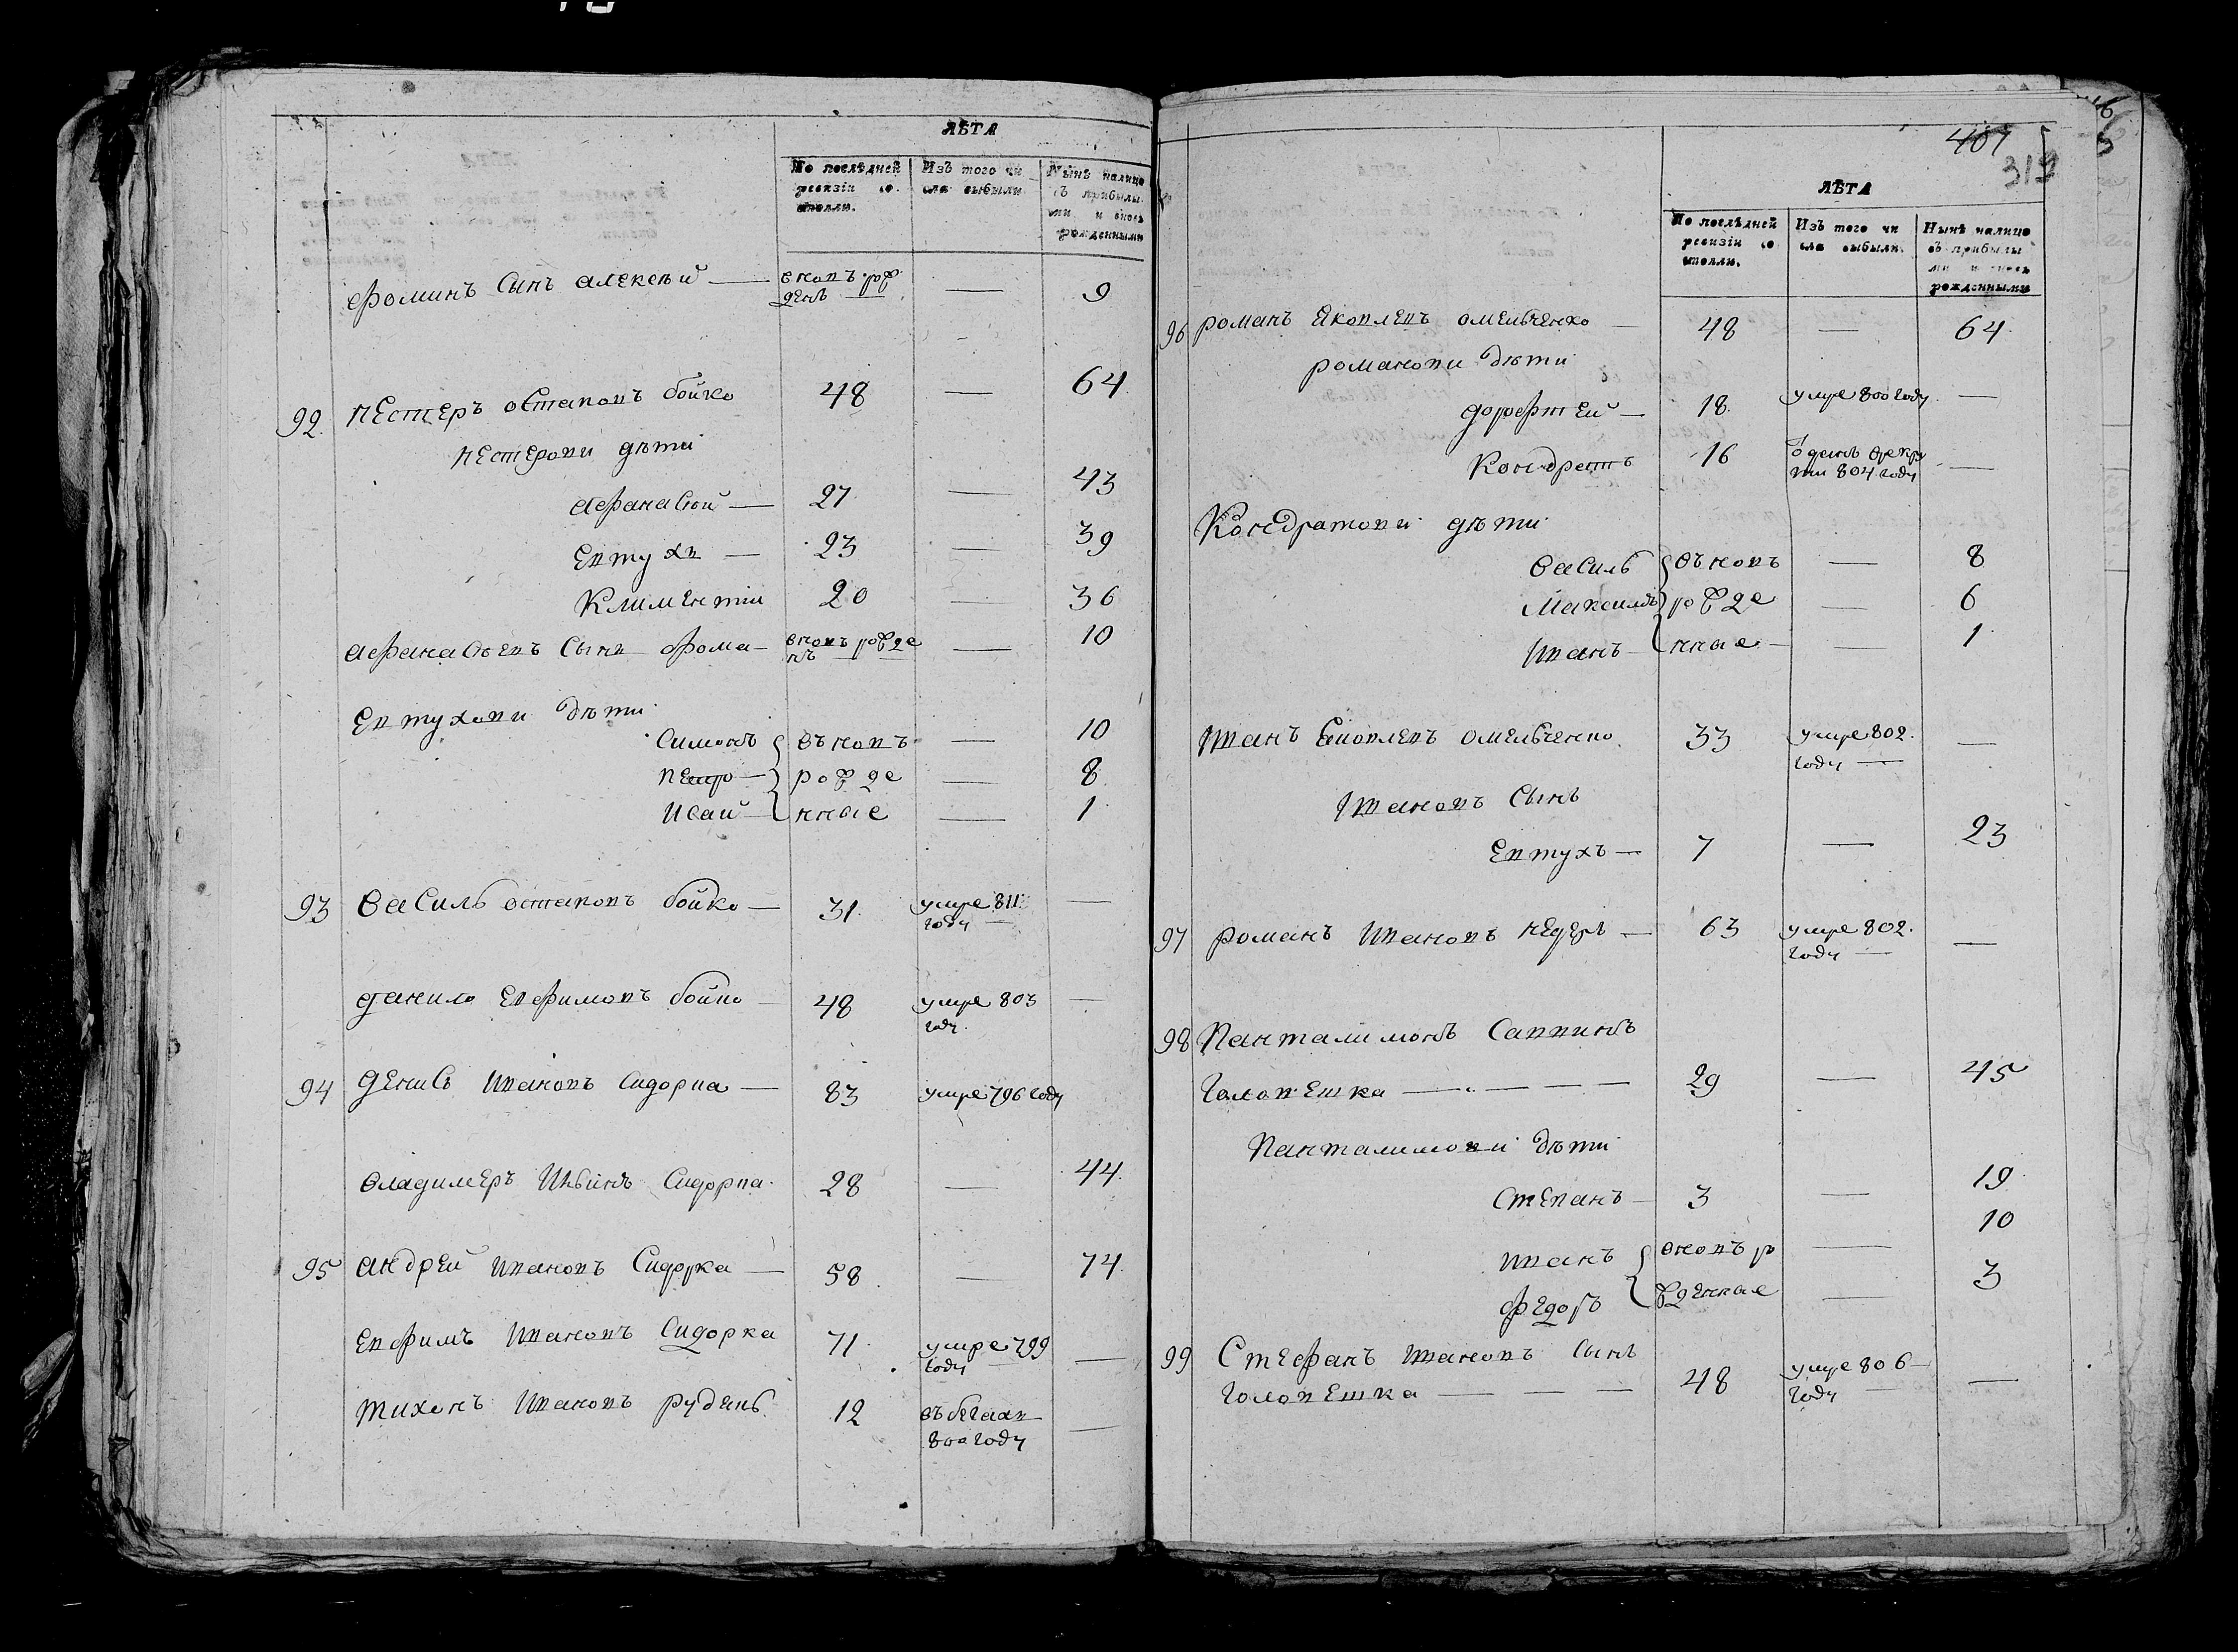 ЛѢТА
По послѣдней ревизіи состояли.
Изъ того числа выбыли
Нынѣ налицо съ прибылыми и вновь рожденными
Фоминъ сынъ алексѣй — вновъ рожденъ — 9
92. нестеръ остаповъ бойко 48 — 64
нестерови дѣти
афанасій — 27 — 43
Евтухъ — 23 — 39
Климентій 20 — 36
афанасьевъ сынъ фома — вновъ рожденъ — 10
Евтухови дѣти
Симонъ въновъ — 10
петро — рожде — 8
Исай — нные — 1
93 василь остаповъ бойко — 31. умре 811 —
году —
данило Евфимовъ бойко — 48 умре 803 —
году.
94 денисъ ивановъ сидорка — 83 умре 796 году
владимеръ Ильинъ сидорка. 28 — 44.
95 андрей ивановъ Сидорка — 58. — 74.
Евфимъ ивановъ Сидорка 71. умре 799 —
году
тихонъ ивановъ рудь 12 въ бегахъ —
800 году
407
319
ЛѢТА
По послѣдней ревизіи состояли.
Изъ того числа выбыли.
Нынѣ налицо съ прибылыми и вновь рожденными
96 романъ яковлевъ омельченко — 48 — 64.
романови дѣти
дорофтей — 18. умре 800 году —
Кондратъ 16 отданъ врекру —
ти 804 году
Кондратови дѣти
василь въновъ — 8
Максимъ рожде — 6
Иванъ — нные — 1.
Иванъ яковлевъ омельченко 33 умре 802. —
году —
Ивановъ сынъ
Евтухъ — 7 — 23
97 романъ ивановъ — 63 умре 802. —
году —
98 Панталимонъ Саввинъ
Голопешка — — — — 29 — 45
Панталимони дѣти
степанъ — 3 — 19
иванъ вновъ ро — 10
федоръ жденные — 3
99 Стефанъ ивановъ сынъ
голопешка — — — 48 умре 806 —
году —